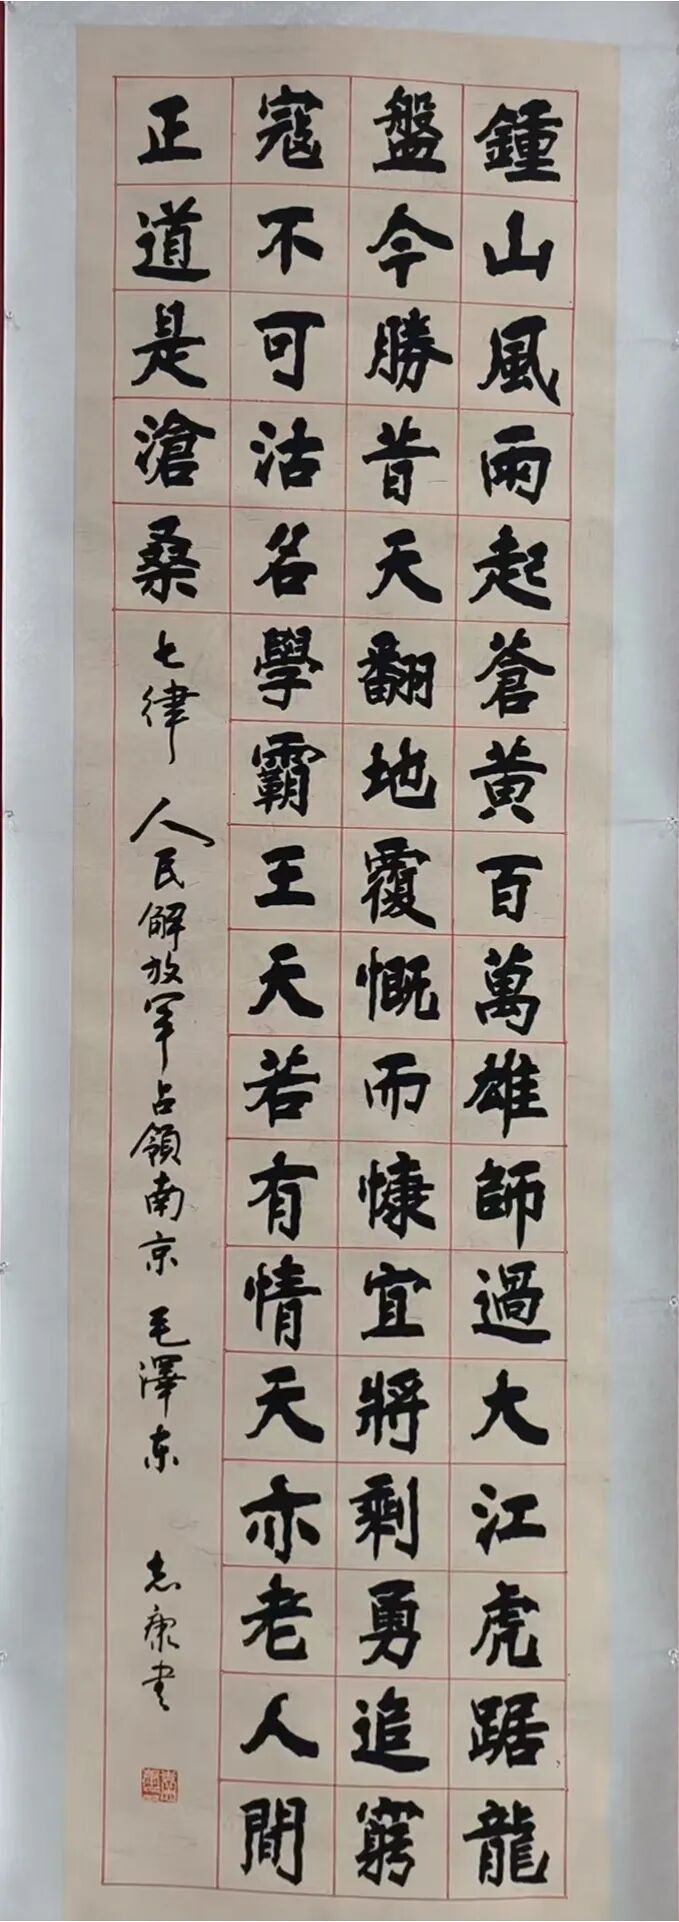 鍾山風雨起蒼黃百萬雄師過大江虎踞龍
盤今勝昔天翻地覆慨而慷宜將剩勇追窮
寇不可沽名學霸王天若有情天亦老人間
正道是滄桑
七律 人民解放军占領南京 毛澤东 志康书